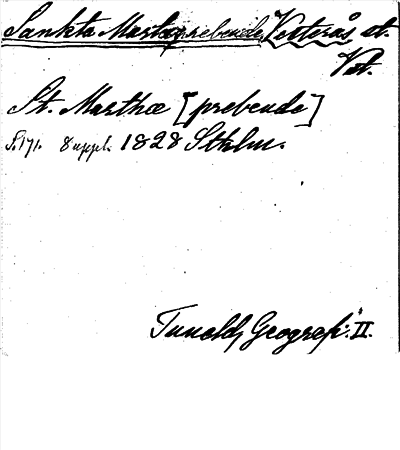 Sankta Marta prebende Västerås st.
Vst.
St. Marthæ [prebende]
S. 171. 8 uppl. 1828 Sthlm.
Tunelds Geografi. II.